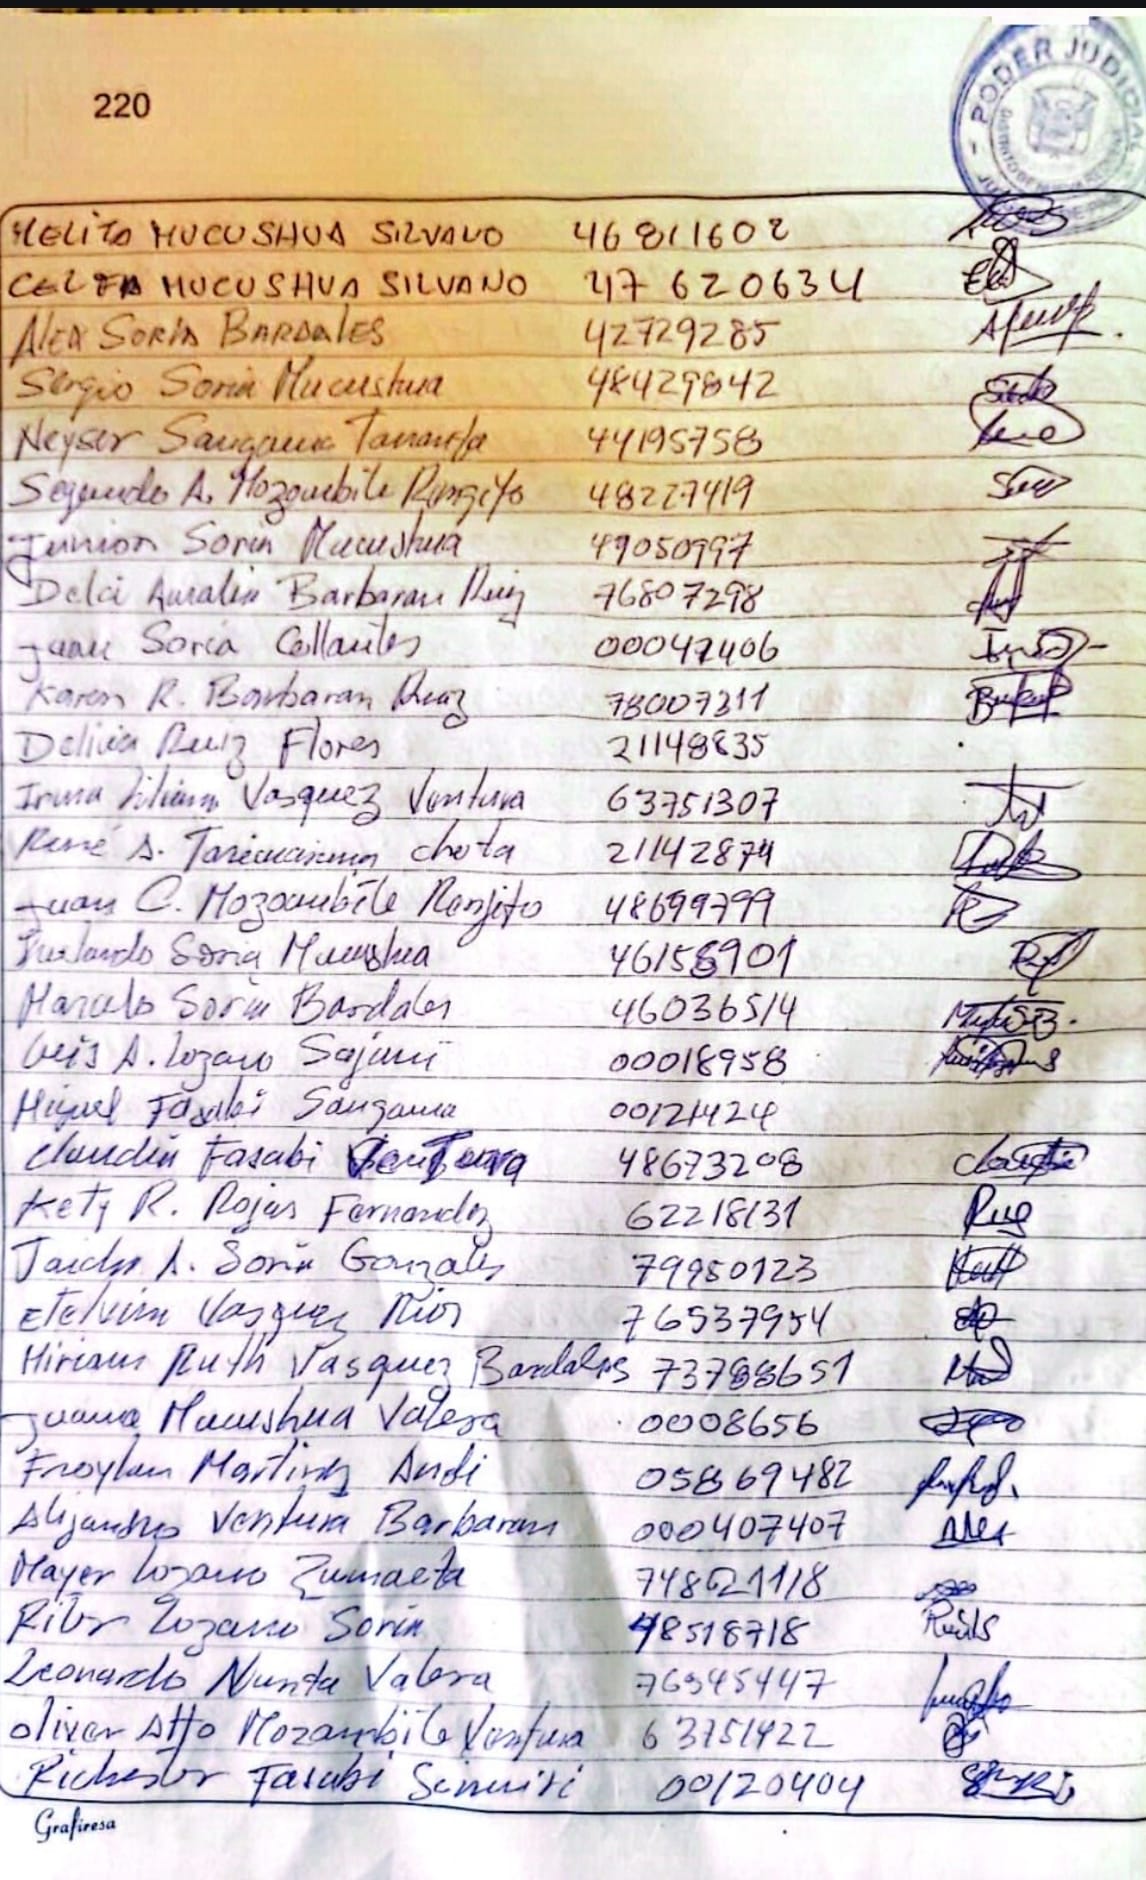 220
PODER JUDICIAL
MELITA MUCUSHUA SILVANO 46811602
CELIA MUCUSHUA SILVANO 47620634
Alex Soria Bardales 42729285
Sergio Soria Mucushua 48429842
Neyser Sangama 44195758
Segundo A. Mozombite Rengifo 48227419
Junior Soria Mucushua 49050997
Delci Auralia Barbaran Ruiz 76807298
Juan Soria Collantes 00047406
Karen R. Barbaran Ruiz 78007311
Delicia Ruiz Flores 21148835
Irma Liliana Vasquez Ventura 63751307
René A. chota 21142874
Juan C. Mozombite Renjifo 48699799
Soria Mucushua 46158901
Marcelo Soria Bardales 46036514
Luis A. Lozano Sajami 00018958
Miguel Fasabi Sangama 00121424
Claudia Fasabi Ventura 48673208
Kety R. Rojas Fernandez 62218131
A. Soria Gonzales 79980123
Etelvina Vasquez Rios 76537954
Miriam Ruth Vasquez Bardales 73788651
Juana Mucushua Valera 0008656
Froylan Martinez Andi 05869482
Alijandro Ventura Barbaran 000407407
Mayer Lozano Zumaeta 74862118
Riter Lozano Soria 48518718
Leonardo Nunta Valera 76945447
Oliver Atto Mozambite Ventura 63751422
Richester Fasabi 00120404
Grafiresa